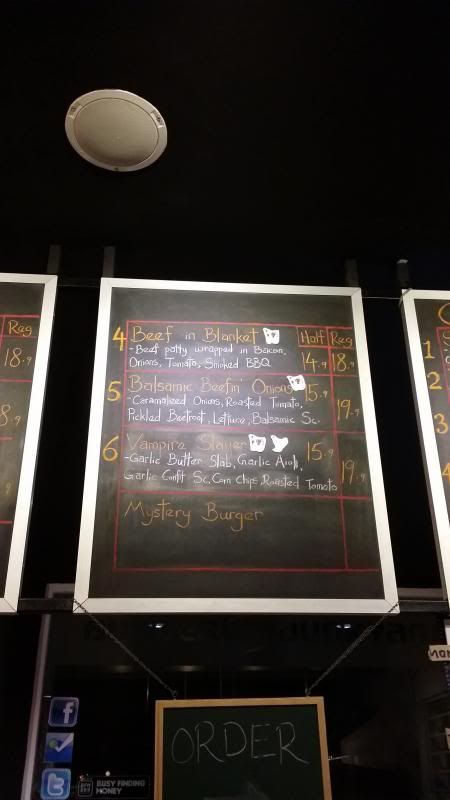 Reg
18.9
8.9
4 Beef in Blanket Half Reg
- Beef patty wrapped in Bacon, 14.9 18.9
Onions, Tomato, Smoked BBQ
5 Balsamic Beefin' Onions 15.9 19.9
- Caramalized Onions, Roasted Tomato,
Pickled Beetroot, Lettuce, Balsamic Sc.
6 Vampire Slayer 15.9 19.9
- Garlic Butter Slab, Garlic Aioli,
Garlic Confit Sc, Corn Chips, Roasted Tomato
Mystery Burger
1
2
3
ORDER
BUSY FINDING
MONEY